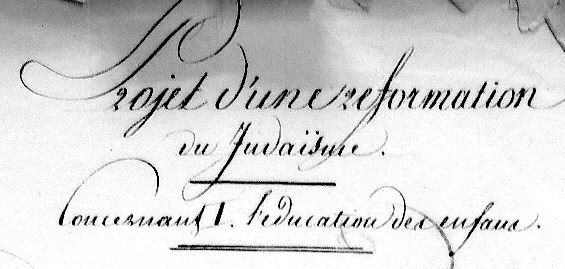 Projet d'une reformation
du Judaïsme.
Concernant I. l'education des enfans.